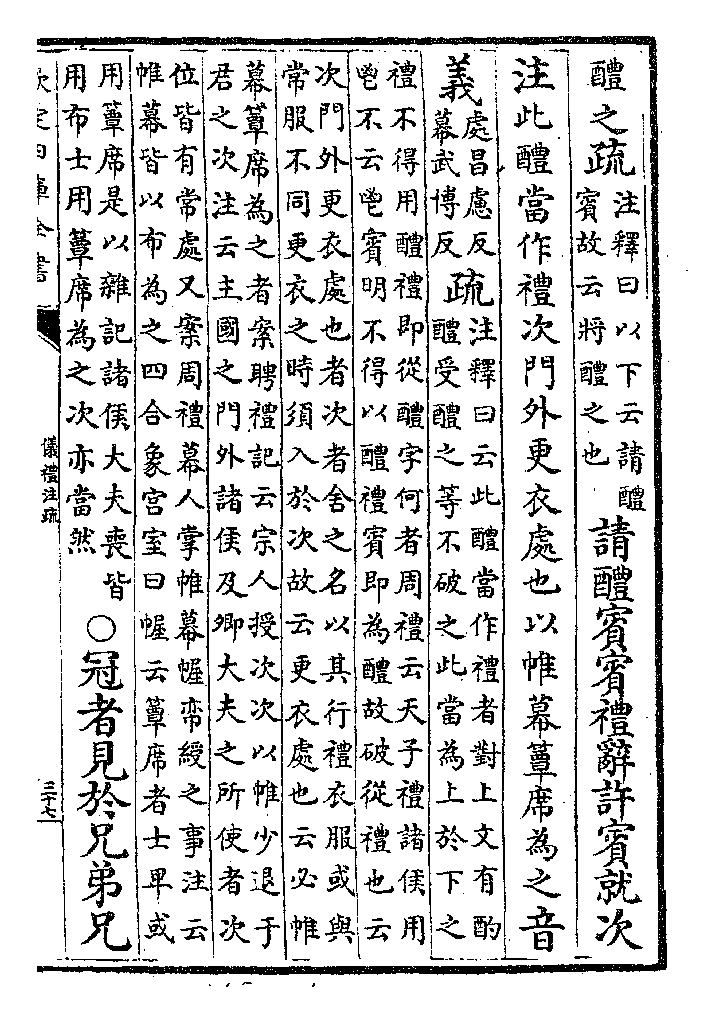 醴之疏注釋曰以下云請醴
賓故云將醴之也請醴賓賓禮辭許賓就次
注此醴當作禮次門外更衣處也以帷幕簟席為之音
義處昌慮反
幕武博反疏注釋曰云此醴當作禮者對上文有酌
醴受醴之等不破之此當為上於下之
禮不得用醴禮即從醴字何者周禮云天子禮諸侯用
鬯不云鬯賓明不得以醴禮賓即為醴故破從禮也云
次門外更衣處也者次者舍之名以其行禮衣服或與
常服不同更衣之時須入於次故云更衣處也云必帷
幕簟席為之者案聘禮記云宗人授次次以帷少退于
君之次注云主國之門外諸侯及卿大夫之所使者次
位皆有常處又案周禮幕人掌帷幕幄帟綬之事注云
帷幕皆以布為之四合象宫室曰幄云簟席者士卑或
用簟席是以雜記諸侯大夫喪皆
用布士用簟席為之次亦當然○冠者見於兄弟兄
欽定四庫全書
儀禮注疏
三十七